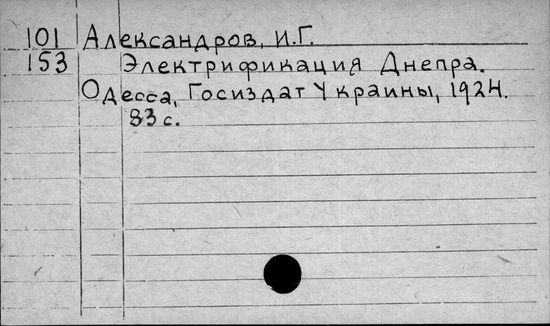 101 Александров, И.Г.
153 Электрификация Днепра.
Одесса, Госиздат Украины, 1924.
83 с.